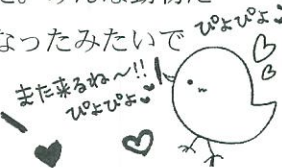 なったみたいで
ぴよぴよ
また来るね〜!!
ぴよぴよ